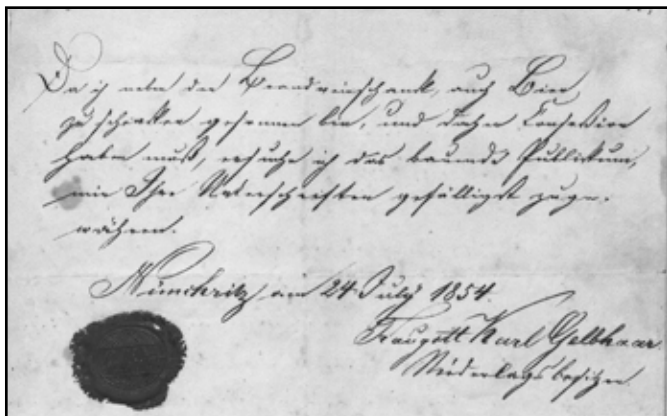 Da ich neben den Brandweinschank, auch Bier
zu schenken gesonnen bin, und dazu Konseßion
haben muß, ersuche ich das Publikum,
mir Ihre Unterschriften gefälligst zuge-
währen.
Nünchritz am 24. July 1854.
Traugott Karl Gelbhaar
Niederlagsbesitzer.